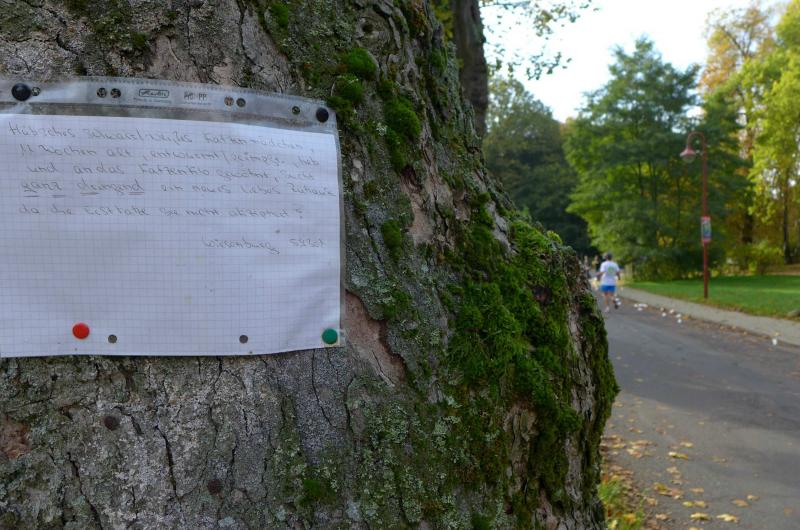 Herlitz PP
Hübsches schwarz-weißes Katzenmädchen
11 Wochen alt, entwurmt, geimpft, lieb
und an das Katzenklo gewöhnt, sucht
ganz dringend ein neues liebes Zuhause
da die Erstkatze sie nicht akzeptiert!
Wiesenburg